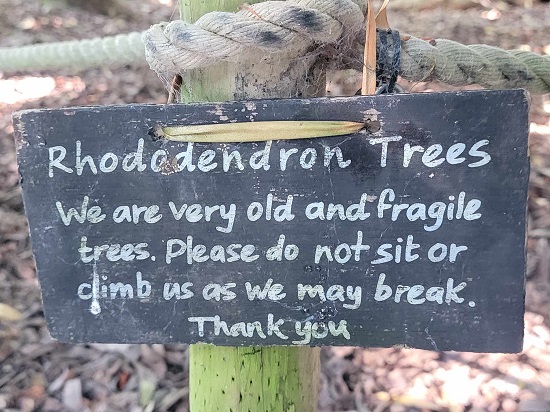 Rhododendron Trees
We are very old and fragile
trees. Please do not sit or
climb us as we may break.
Thank you